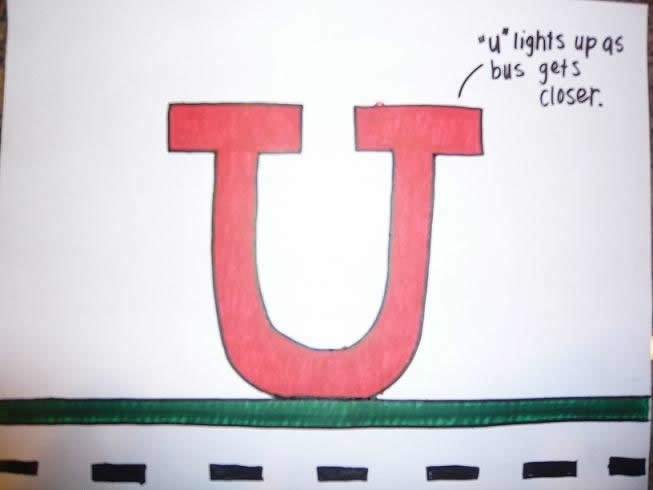 "u" lights up as
bus gets
closer.
U